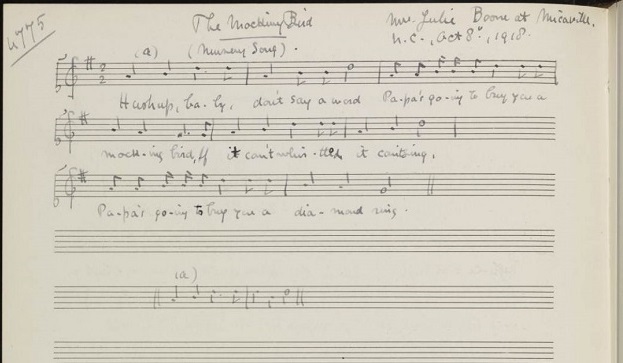 4775
The Mocking Bird
Mrs. Julie Boone at Micaville,
(a) (Nursery Song).
N.C., Oct 8th, 1918.
Hushup, ba-by, don't say a word Pa-pa's go-ing to buy you a
mock-ing bird, If it can't whis-tle it can't sing,
Pa-pa's go-ing to buy you a dia-mond ring.
(a)